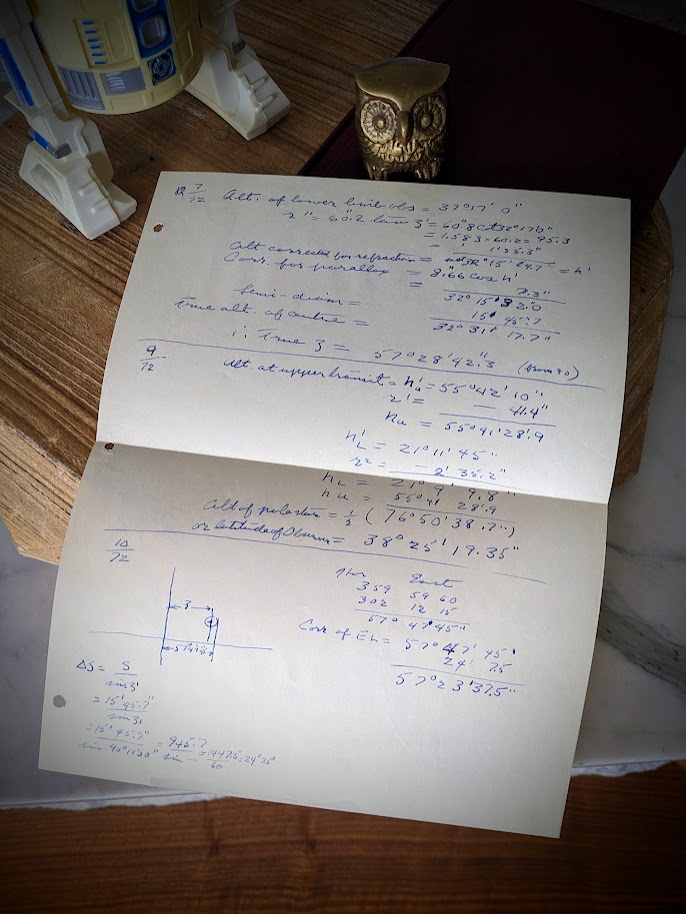 7/72 Alt. of lower limb obs = 37°17' 0"
r" = 60".2 tan z' = 60".8 Ct 32°17'0"
= 1.583 × 60.2 = 95.3
= 1' 35.3"
Alt corrected for refraction = 32° 15' 24.7" = h'
Corr. for parallax = 8".66 cos h'
= 7.3"
32° 15' 32".0
Semi-diam = 15' 45".7
True alt. of centre = 32° 31' 17.7"
∴ True z = 57° 28' 42".3
9/72
Alt. at upper transit = h'u = 55° 42' 10"
r' = — 41.4"
hu = 55° 41' 28".9
h'L = 21° 11' 45"
r2 = - 2' 35.2"
hL = 21° 9' 9.8"
hu = 55° 41 28".9
Alt of polestar = 1/2 ( 76° 50' 38.7")
or latitude of Observer = 38° 25' 19.35"
10/72
Hor East
359 59 60
302 12 15
57° 47' 45"
z
Corr of EL = 57° 47' 45"
24' 7.5
57° 23' 37.5"
ΔS = S / sin z'
= 15' 45.7" / sin z'
= 15' 45.7" / sin 40°17'30" = 945.7 / sin — = 1447.5 / 60 = 24' 7.5"